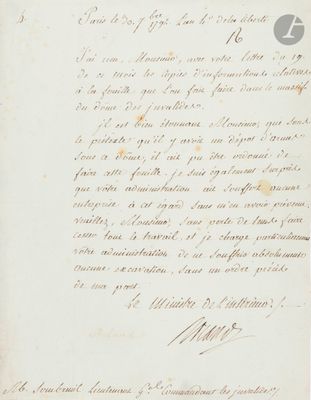 Paris le 30. 7bre 1792. L'an 4e de la liberté
J'ai reçu, Monsieur, avec votre lettre du 19
de ce mois les copies d'informations relatives
à la fouille que l'on fait faire dans le massif
du dôme des invalides.
il est bien étonnant, Monsieur, que sous
le prétexte qu'il y avoit un dépôt d'armes
sous ce dôme, il ait pu être ordonné de
faire cette fouille. je suis également surpris
que votre administration ait souffert aucune
entreprise à cet égard sans m'en avoir prévenu
veuillez, Monsieur, sans perte de tems faire
cesser tout le travail, et je charge particulièrement
votre administration de ne souffrir absolument
aucune excavation, sans un ordre précis
de ma part.
Le Ministre de l'intérieur /.
Roland
M. Sombreuil Lieutenant Gal. Commandant les invalides /.